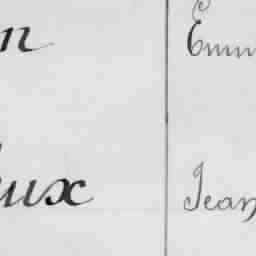 n Emm
ux Jean